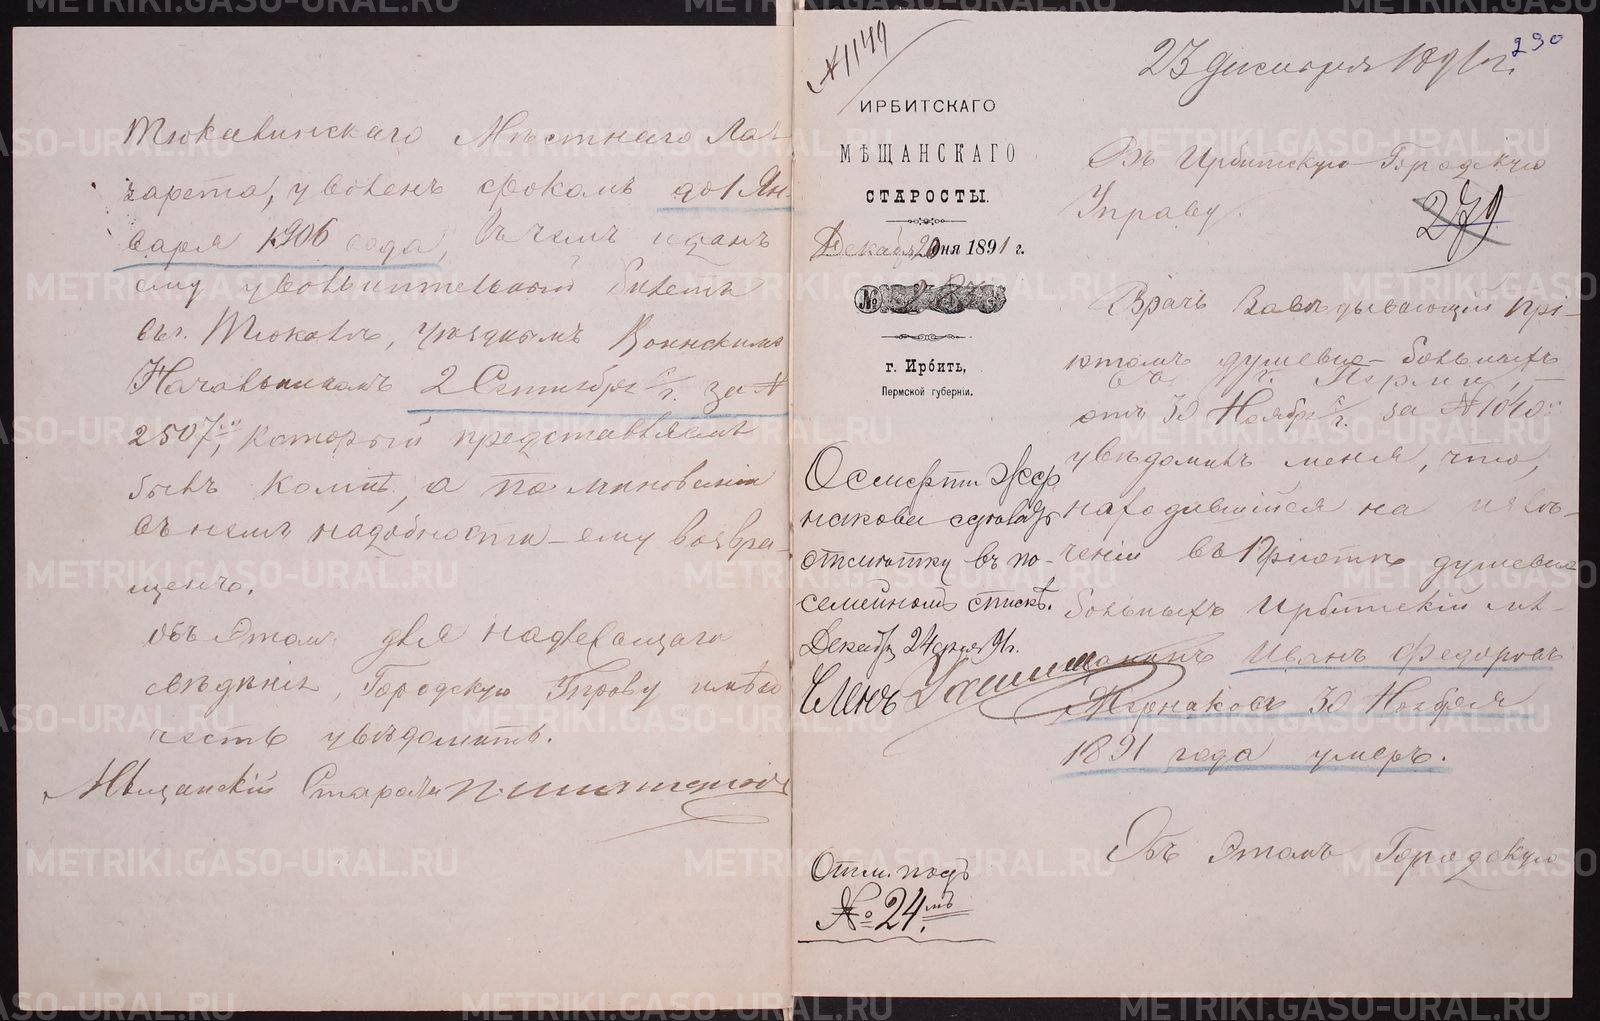 Тюкалинскаго Мѣстнаго Ла-
зарета, уволенъ срокомъ до 1 Ян-
варя 1906 года, въ чемъ изданъ
ему увольнительный билетъ
въ г. Тюкалѣ, Уѣзднымъ Воинскимъ
Начальникомъ 2 Сентября с/г. за №
2507, который представлялъ
былъ комнѣ, а по минованіи
въ немъ надобности – ему возвра-
щенъ.
Объ этомъ для надлежащаго
свѣдѣнія, Городскую Управу имѣю
честь увѣдомить.
Мѣщанскій Староста
№ 1149
ИРБИТСКАГО
МѢЩАНСКАГО
СТАРОСТЫ.
Декабря 20 дня 1891 г.
№
г. Ирбить,
Пермской губерніи.
О смерти Жер
накова сдѣлать
отмѣтку въ по-
семейномъ спискѣ.
Декабря 24 дня 91 г.
Членъ
Отм. подъ
№ 24мъ
290
23 декабря 1891 г.
Въ Ирбитскую Городскую
Управу.
279
Врачъ Завѣдывающій прі-
ютомъ душевно-больныхъ
въ г. Перми,
отъ 30 Ноября с/г. за № 1040
увѣдомилъ меня, что,
находившійся на излѣ-
ченіи въ Пріютѣ душевно
больныхъ Ирбитскій мѣ-
щанинъ Иванъ Федоровъ
Жернаковъ 30 Ноября
1891 года умеръ.
Объ этомъ Городскую